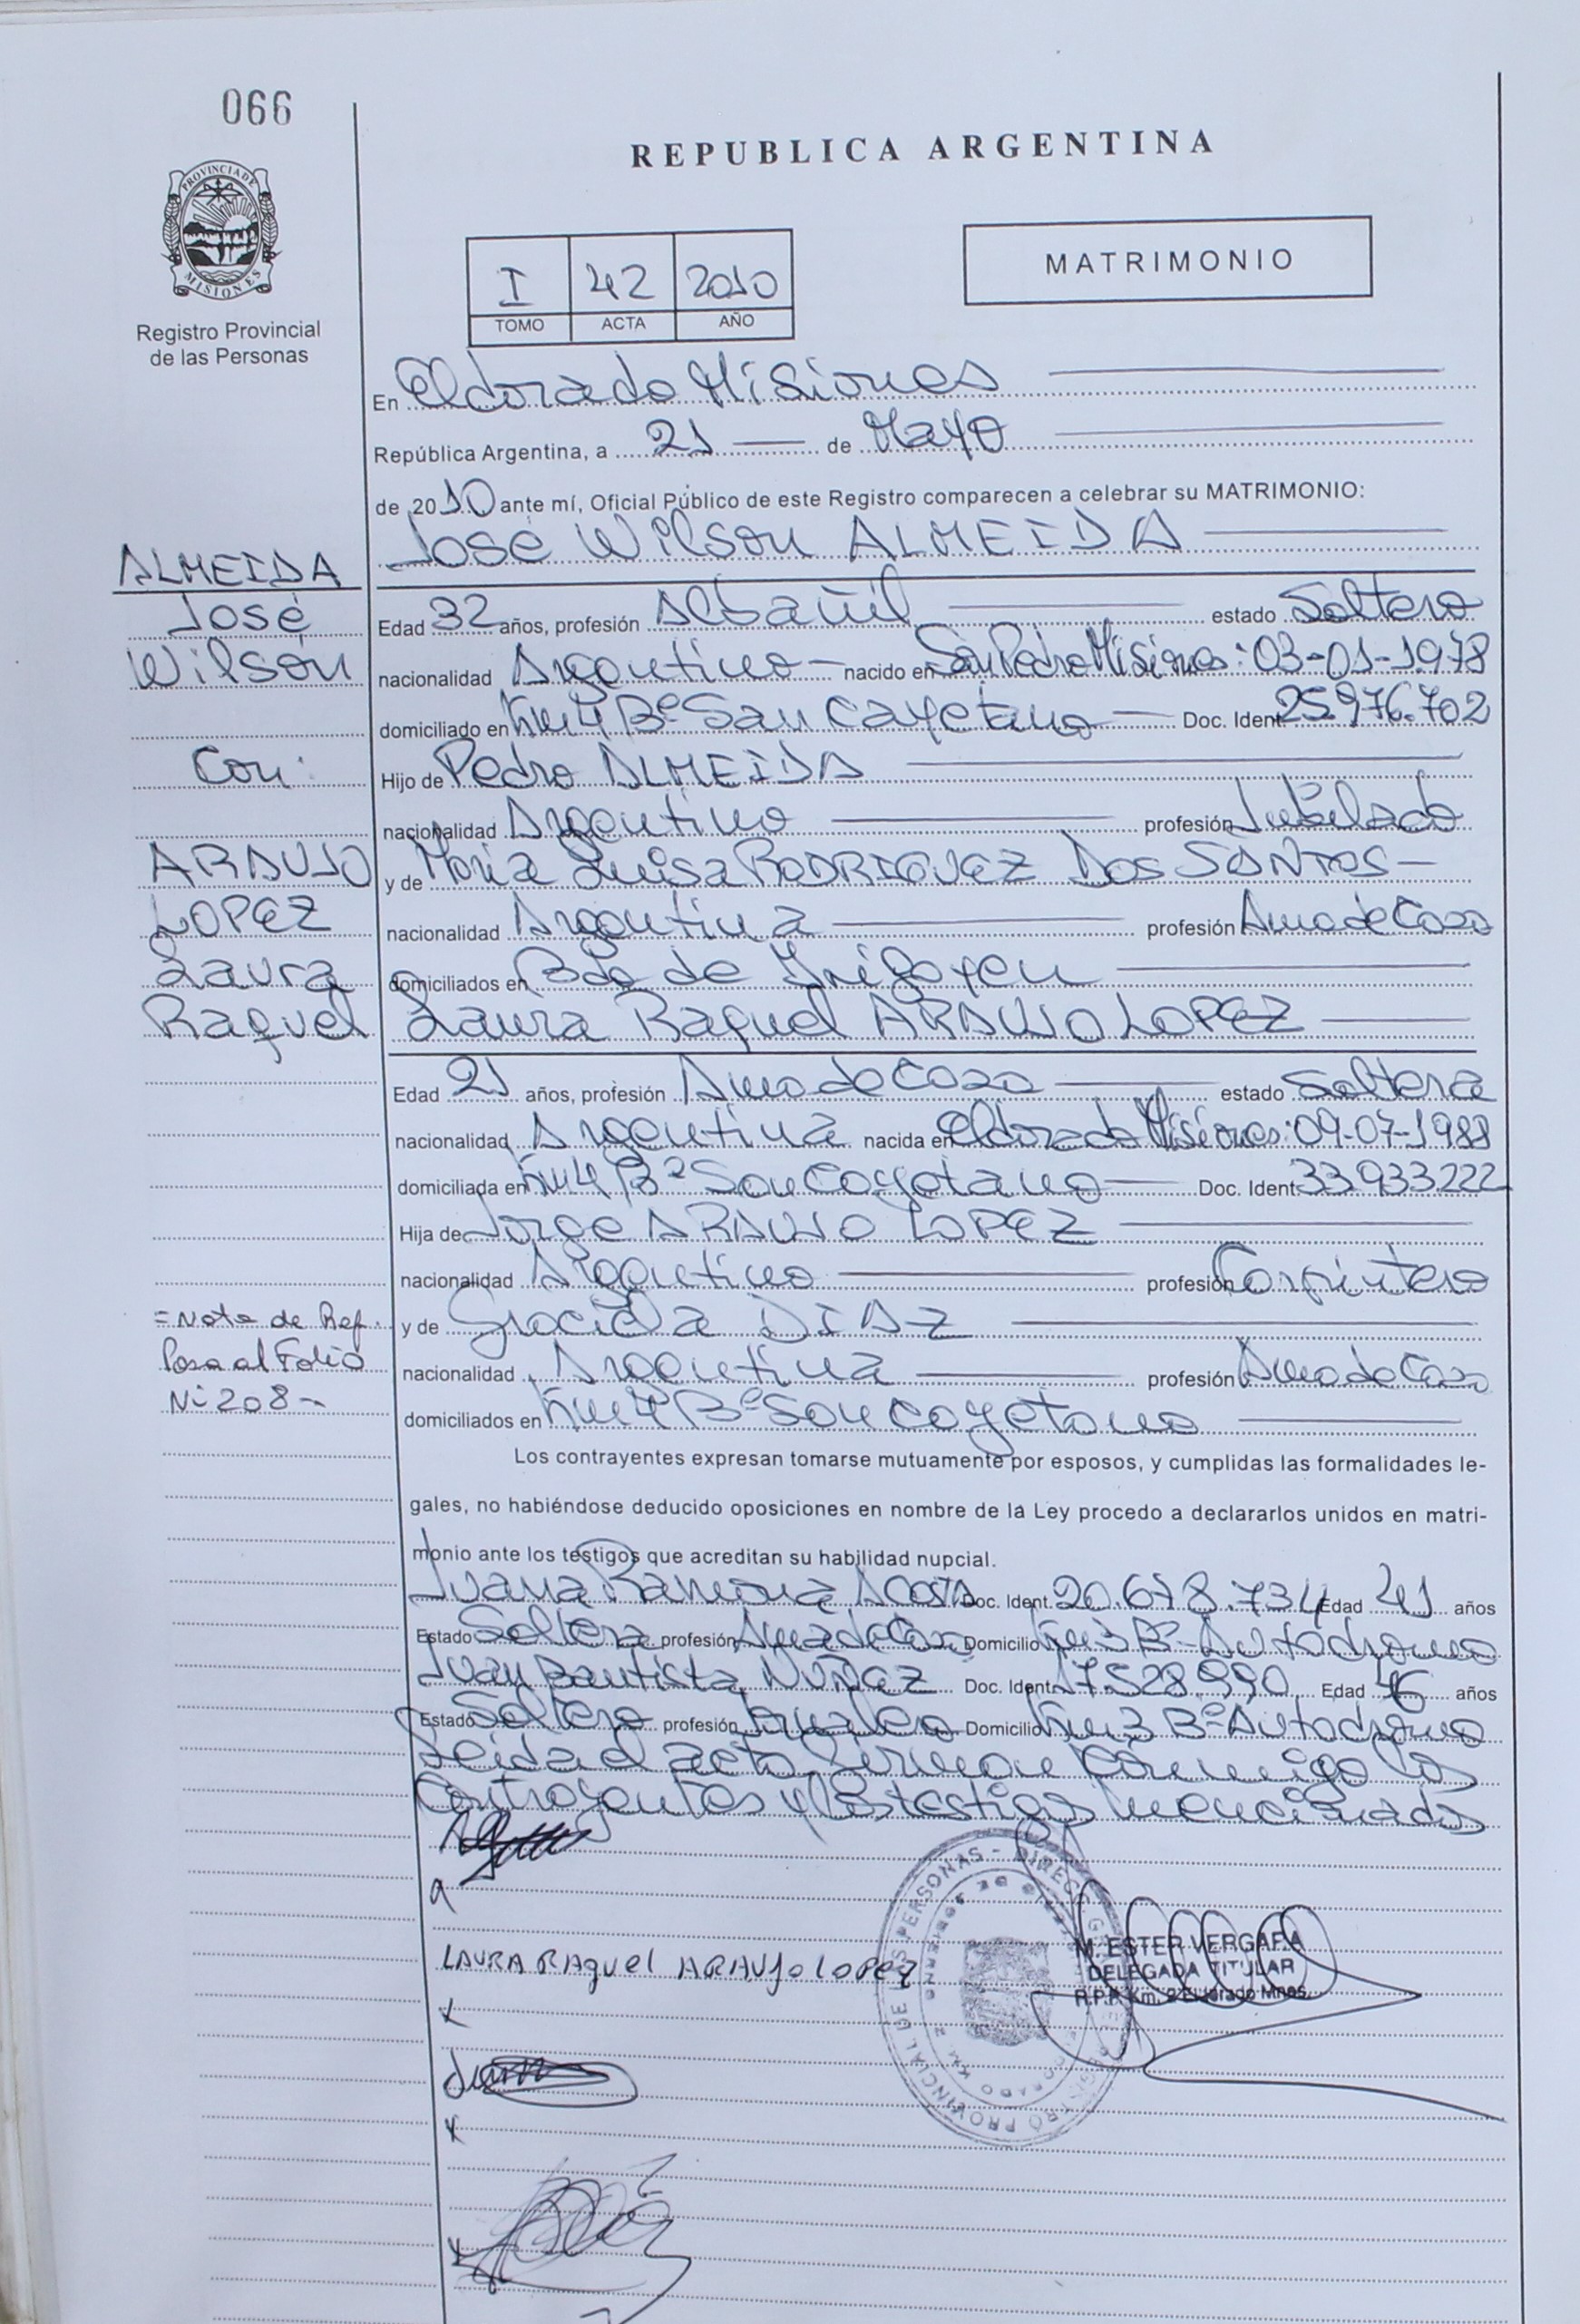 066
REPUBLICA ARGENTINA
PROVINCIA DE
MISIONES
Registro Provincial
de las Personas
I 42 2010
TOMO ACTA AÑO
MATRIMONIO
En Eldorado Misiones
República Argentina, a 21 de Mayo
de 2010 ante mí, Oficial Público de este Registro comparecen a celebrar su MATRIMONIO:
José Wilson ALMEIDA
ALMEIDA
José
Wilson
Con:
ARAUJO
LOPEZ
Laura
Raquel
Edad 32 años, profesión Albañil estado Soltero
nacionalidad Argentino nacido en San Pedro Misiones: 03-01-1978
domiciliado en Km 4 Bº San Cayetano Doc. Ident. 25.976.702
Hijo de Pedro ALMEIDA
nacionalidad Argentino profesión Jubilado
y de Maria Luisa RODRIGUEZ DOS SANTOS
nacionalidad Argentina profesión Ama de Casa
domiciliados en Bdo de Irigoyen
Laura Raquel ARAUJO LOPEZ
Edad 21 años, profesión Ama de Casa estado Soltera
nacionalidad Argentina nacida en Eldorado Misiones: 09-07-1988
domiciliada en Km 4 Bº San Cayetano Doc. Ident. 33933222
Hija de Jorge ARAUJO LOPEZ
nacionalidad Argentino profesión Carpintero
= Nota de Ref.
Pasa al Folio
Nº 208-
y de Graciela DIAZ
nacionalidad Argentina profesión Ama de Casa
domiciliados en Km 4 Bº San Cayetano
Los contrayentes expresan tomarse mutuamente por esposos, y cumplidas las formalidades le-
gales, no habiéndose deducido oposiciones en nombre de la Ley procedo a declararlos unidos en matri-
monio ante los testigos que acreditan su habilidad nupcial.
Juana Ramona ACOSTA Doc. Ident. 20.678.734 Edad 41 años
Estado Soltera profesión Ama de Casa Domicilio Km 3 Bº Autodromo
Juan Bautista NUÑEZ Doc. Ident. 17.528.990 Edad 46 años
Estado Soltero profesión Domicilio Km 3 Bº Autodromo
Leida el acta firman conmigo los
Contrayentes y los testigos mencionados
LAURA RAquel ARAUJO LOPEZ
M. ESTER VERGARA
DELEGADA TITULAR
R.P.P. Km. 2 Eldorado Mnes.